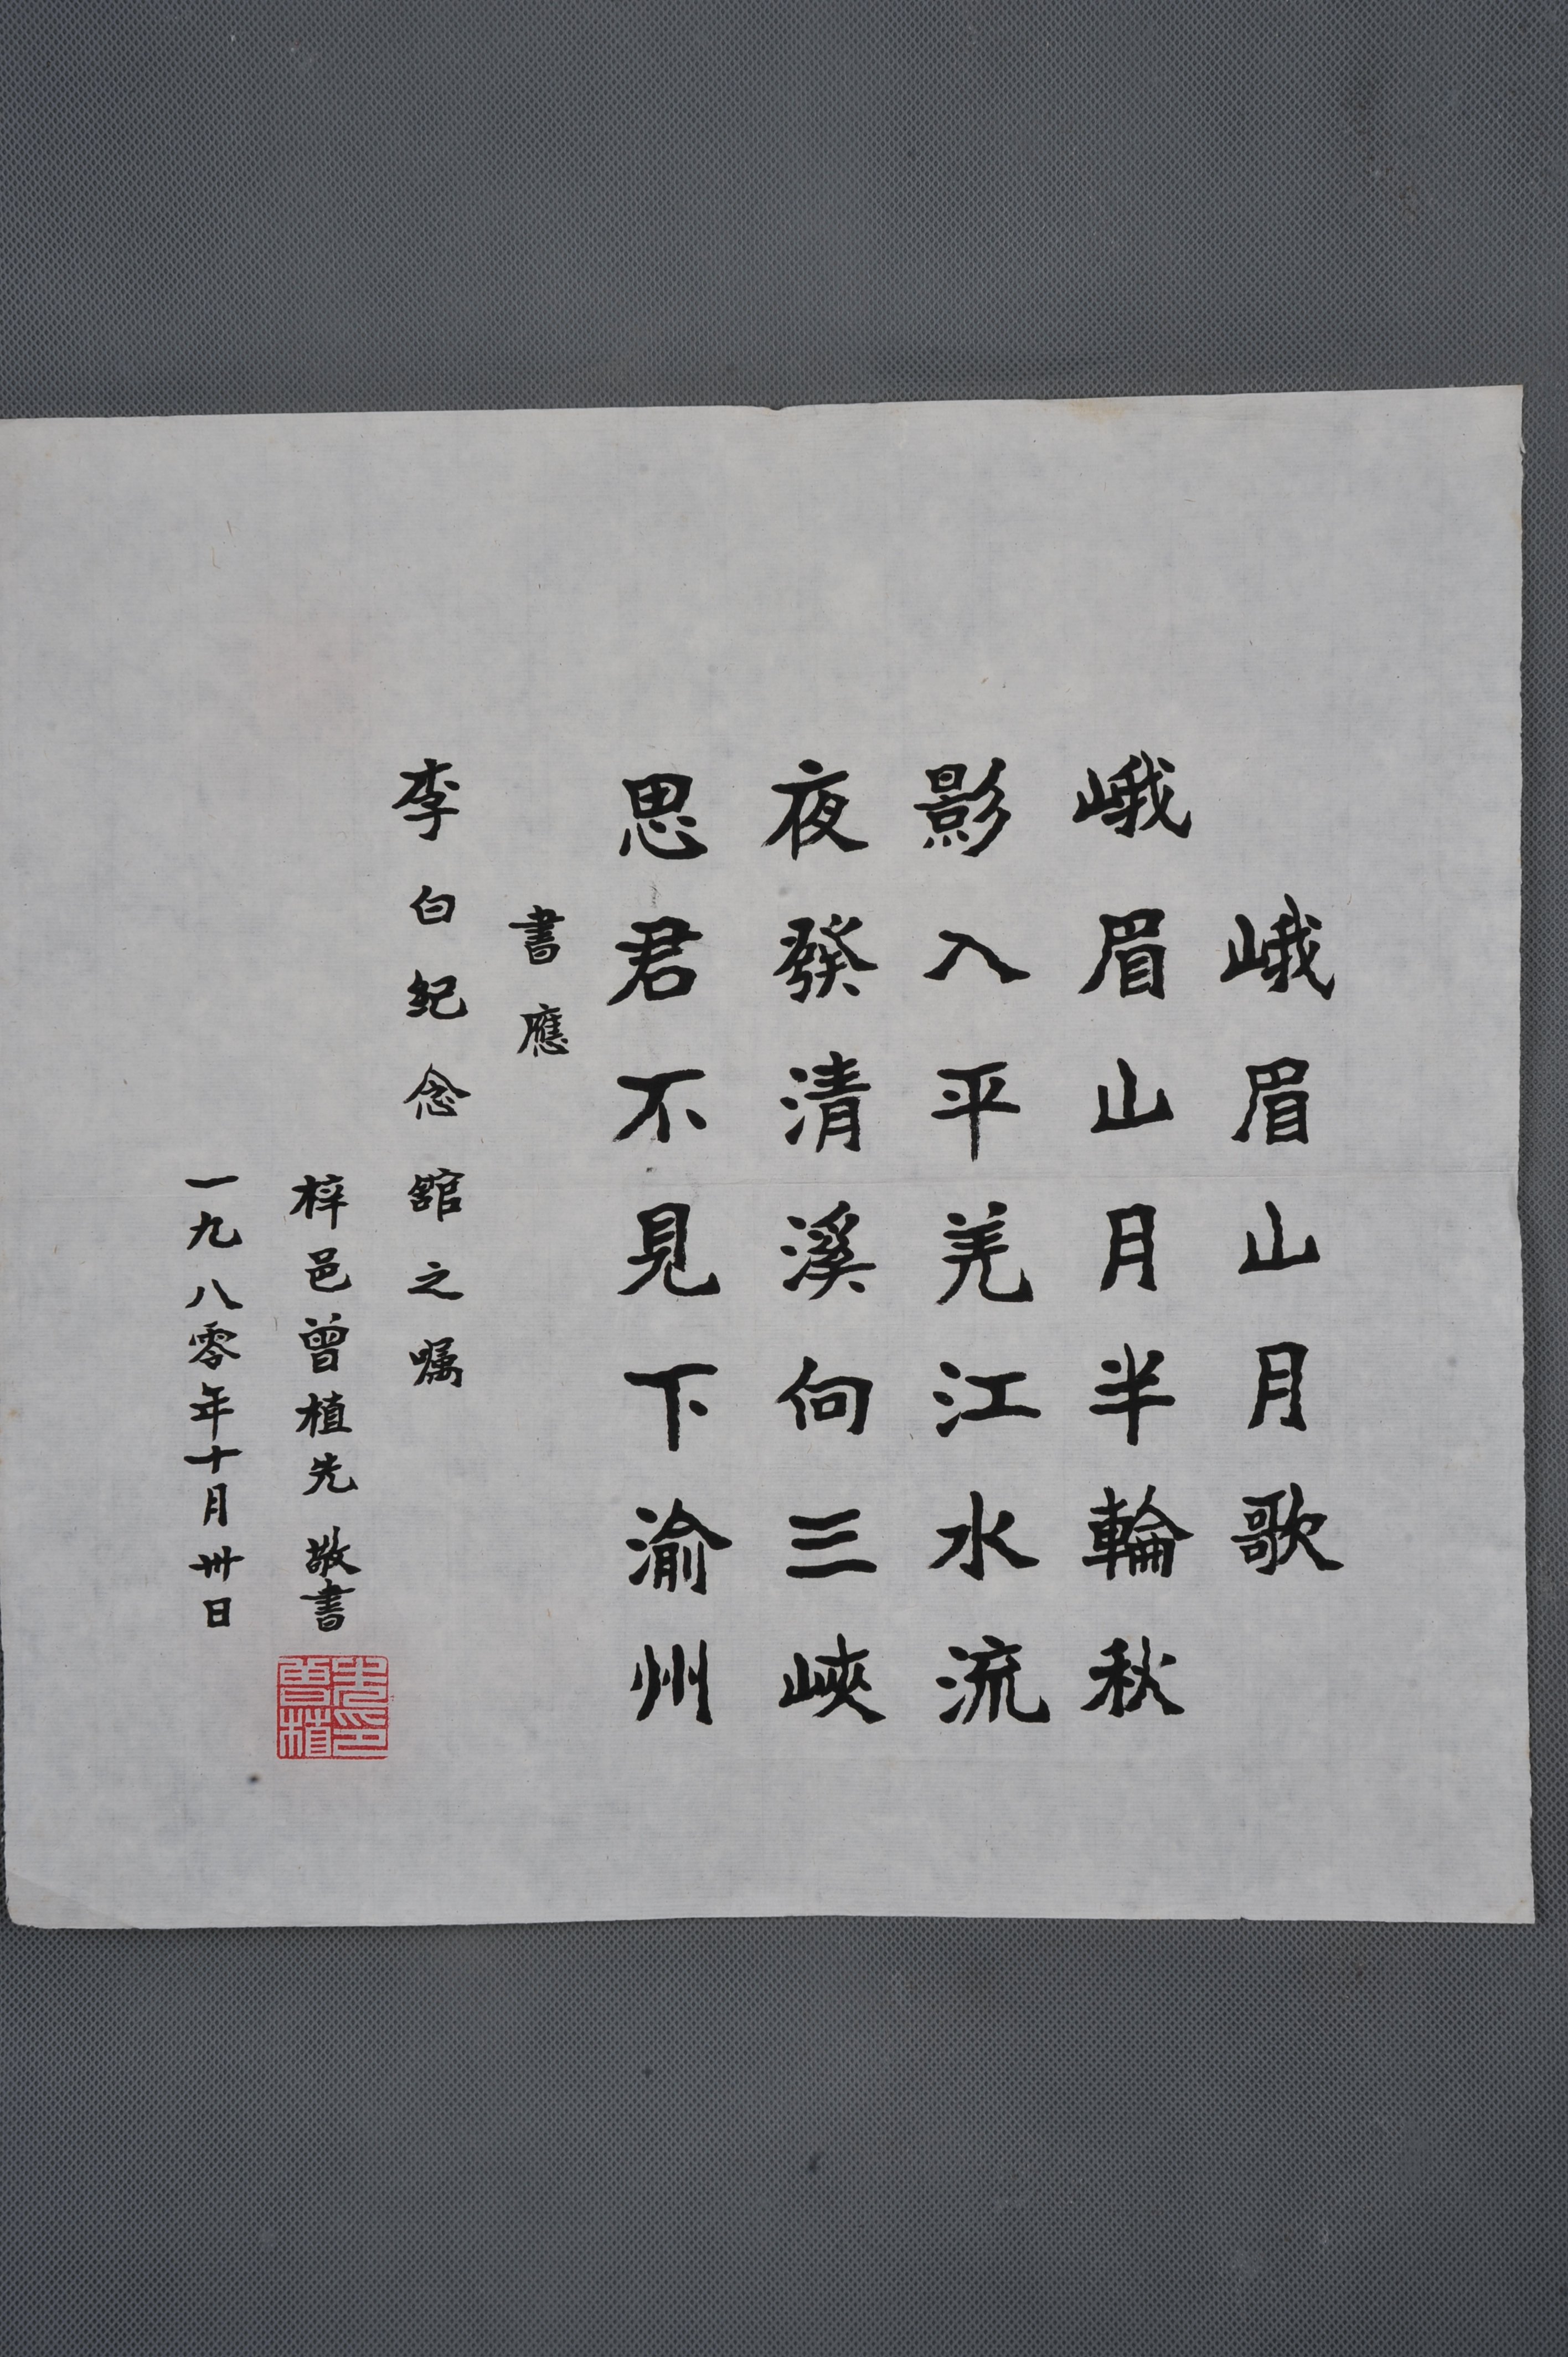 峨眉山月歌
峨眉山月半輪秋
影入平羌江水流
夜發清溪向三峽
思君不見下渝州
書應
李白紀念舘之嘱
梓邑曾植先敬書
一九八零年十月卅日
曾植先印